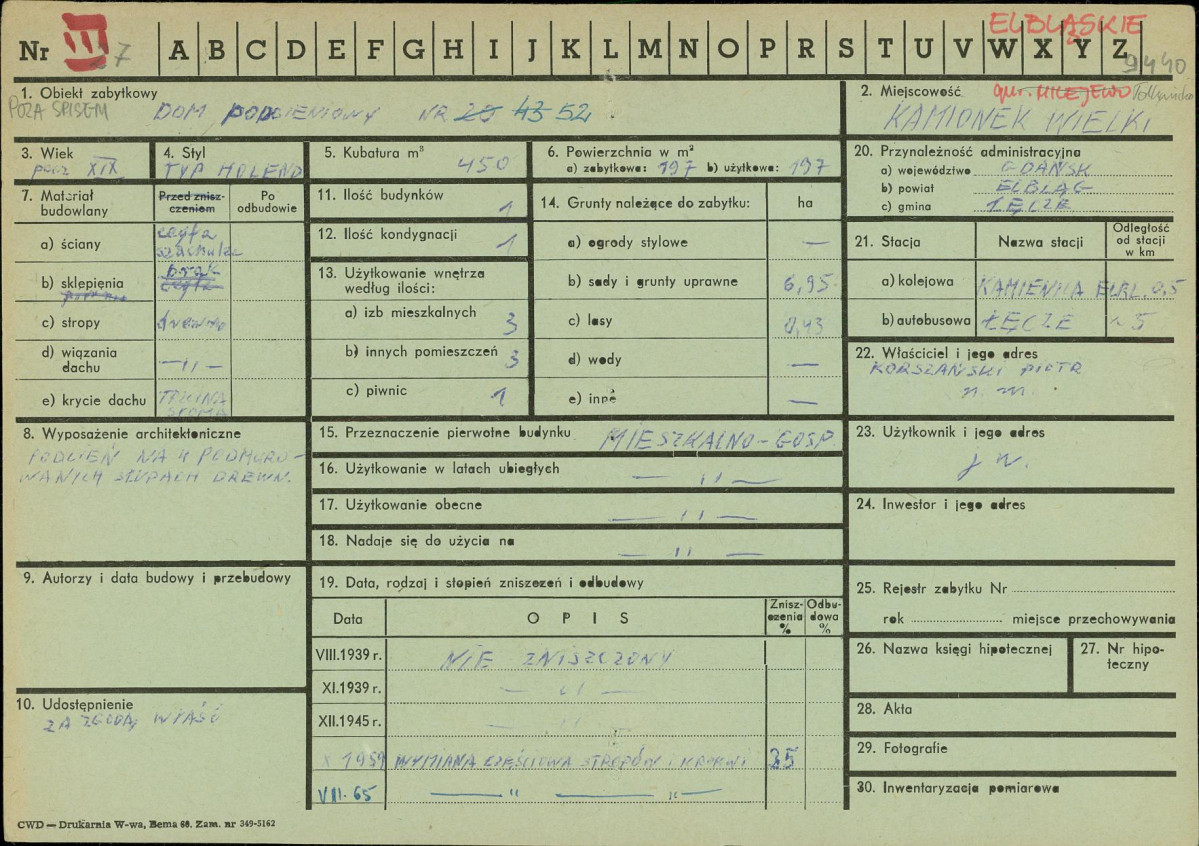 ELBLĄSKIE
Nr III 7 A B C D E F G H I J K L M N O P R S T U V W X Y Z
9440
1. Obiekt zabytkowy
POZA SPISEM DOM PODCIENIOWY NR 43 52
2. Miejscowość gm. MILEJEWO
KAMIONEK WIELKI
3. Wiek
pocz. XIX
4. Styl
TYP HOLEND
5. Kubatura m³
450
6. Powierzchnia w m²
a) zabytkowa: 197 b) użytkowa: 197
20. Przynależność administracyjna
a) województwo GDAŃSK
b) powiat ELBLĄG
c) gmina ŁĘCZE
7. Materiał budowlany
Przed zniszczeniem
Po odbudowie
a) ściany cegła szachulec
b) sklepienia brak cegła
c) stropy drewno
d) wiązania dachu —„—
e) krycie dachu TRZCINA SŁOMA
11. Ilość budynków 1
12. Ilość kondygnacji 1
13. Użytkowanie wnętrza według ilości:
a) izb mieszkalnych 3
b) innych pomieszczeń 3
c) piwnic 1
14. Grunty należące do zabytku: ha
a) ogrody stylowe —
b) sady i grunty uprawne 6,95
c) lasy 0,43
d) wody —
e) inne —
21. Stacja Nazwa stacji Odległość od stacji w km
a) kolejowa KAMIENICA ELBL. 0,5
b) autobusowa ŁĘCZE 5
22. Właściciel i jego adres
KORSZAŃSKI PIOTR
n. m.
8. Wyposażenie architektoniczne
PODCIEŃ NA 4 PODMURO-
WANYCH SŁUPACH DREWN.
15. Przeznaczenie pierwotne budynku MIESZKALNO-GOSP
16. Użytkowanie w latach ubiegłych —„—
17. Użytkowanie obecne —„—
18. Nadaje się do użycia na —„—
23. Użytkownik i jego adres
j w.
24. Inwestor i jego adres
9. Autorzy i data budowy i przebudowy
19. Data, rodzaj i stopień zniszczeń i odbudowy
Data OPIS Zniszczenia % Odbudowa %
VIII.1939 r. NIE ZNISZCZONY
XI.1939 r. —„—
XII.1945 r. „
X 1959 WYMIANA CZĘŚCIOWA STROPÓW I KROKWI 35
VIII.65 —„— —„—
25. Rejestr zabytku Nr
rok miejsce przechowywania
26. Nazwa księgi hipotecznej
27. Nr hipoteczny
10. Udostępnienie
ZA ZGODĄ WŁAŚC
28. Akta
29. Fotografie
30. Inwentaryzacja pomiarowa
CWD — Drukarnia W-wa, Bema 60. Zam. nr 349-5162